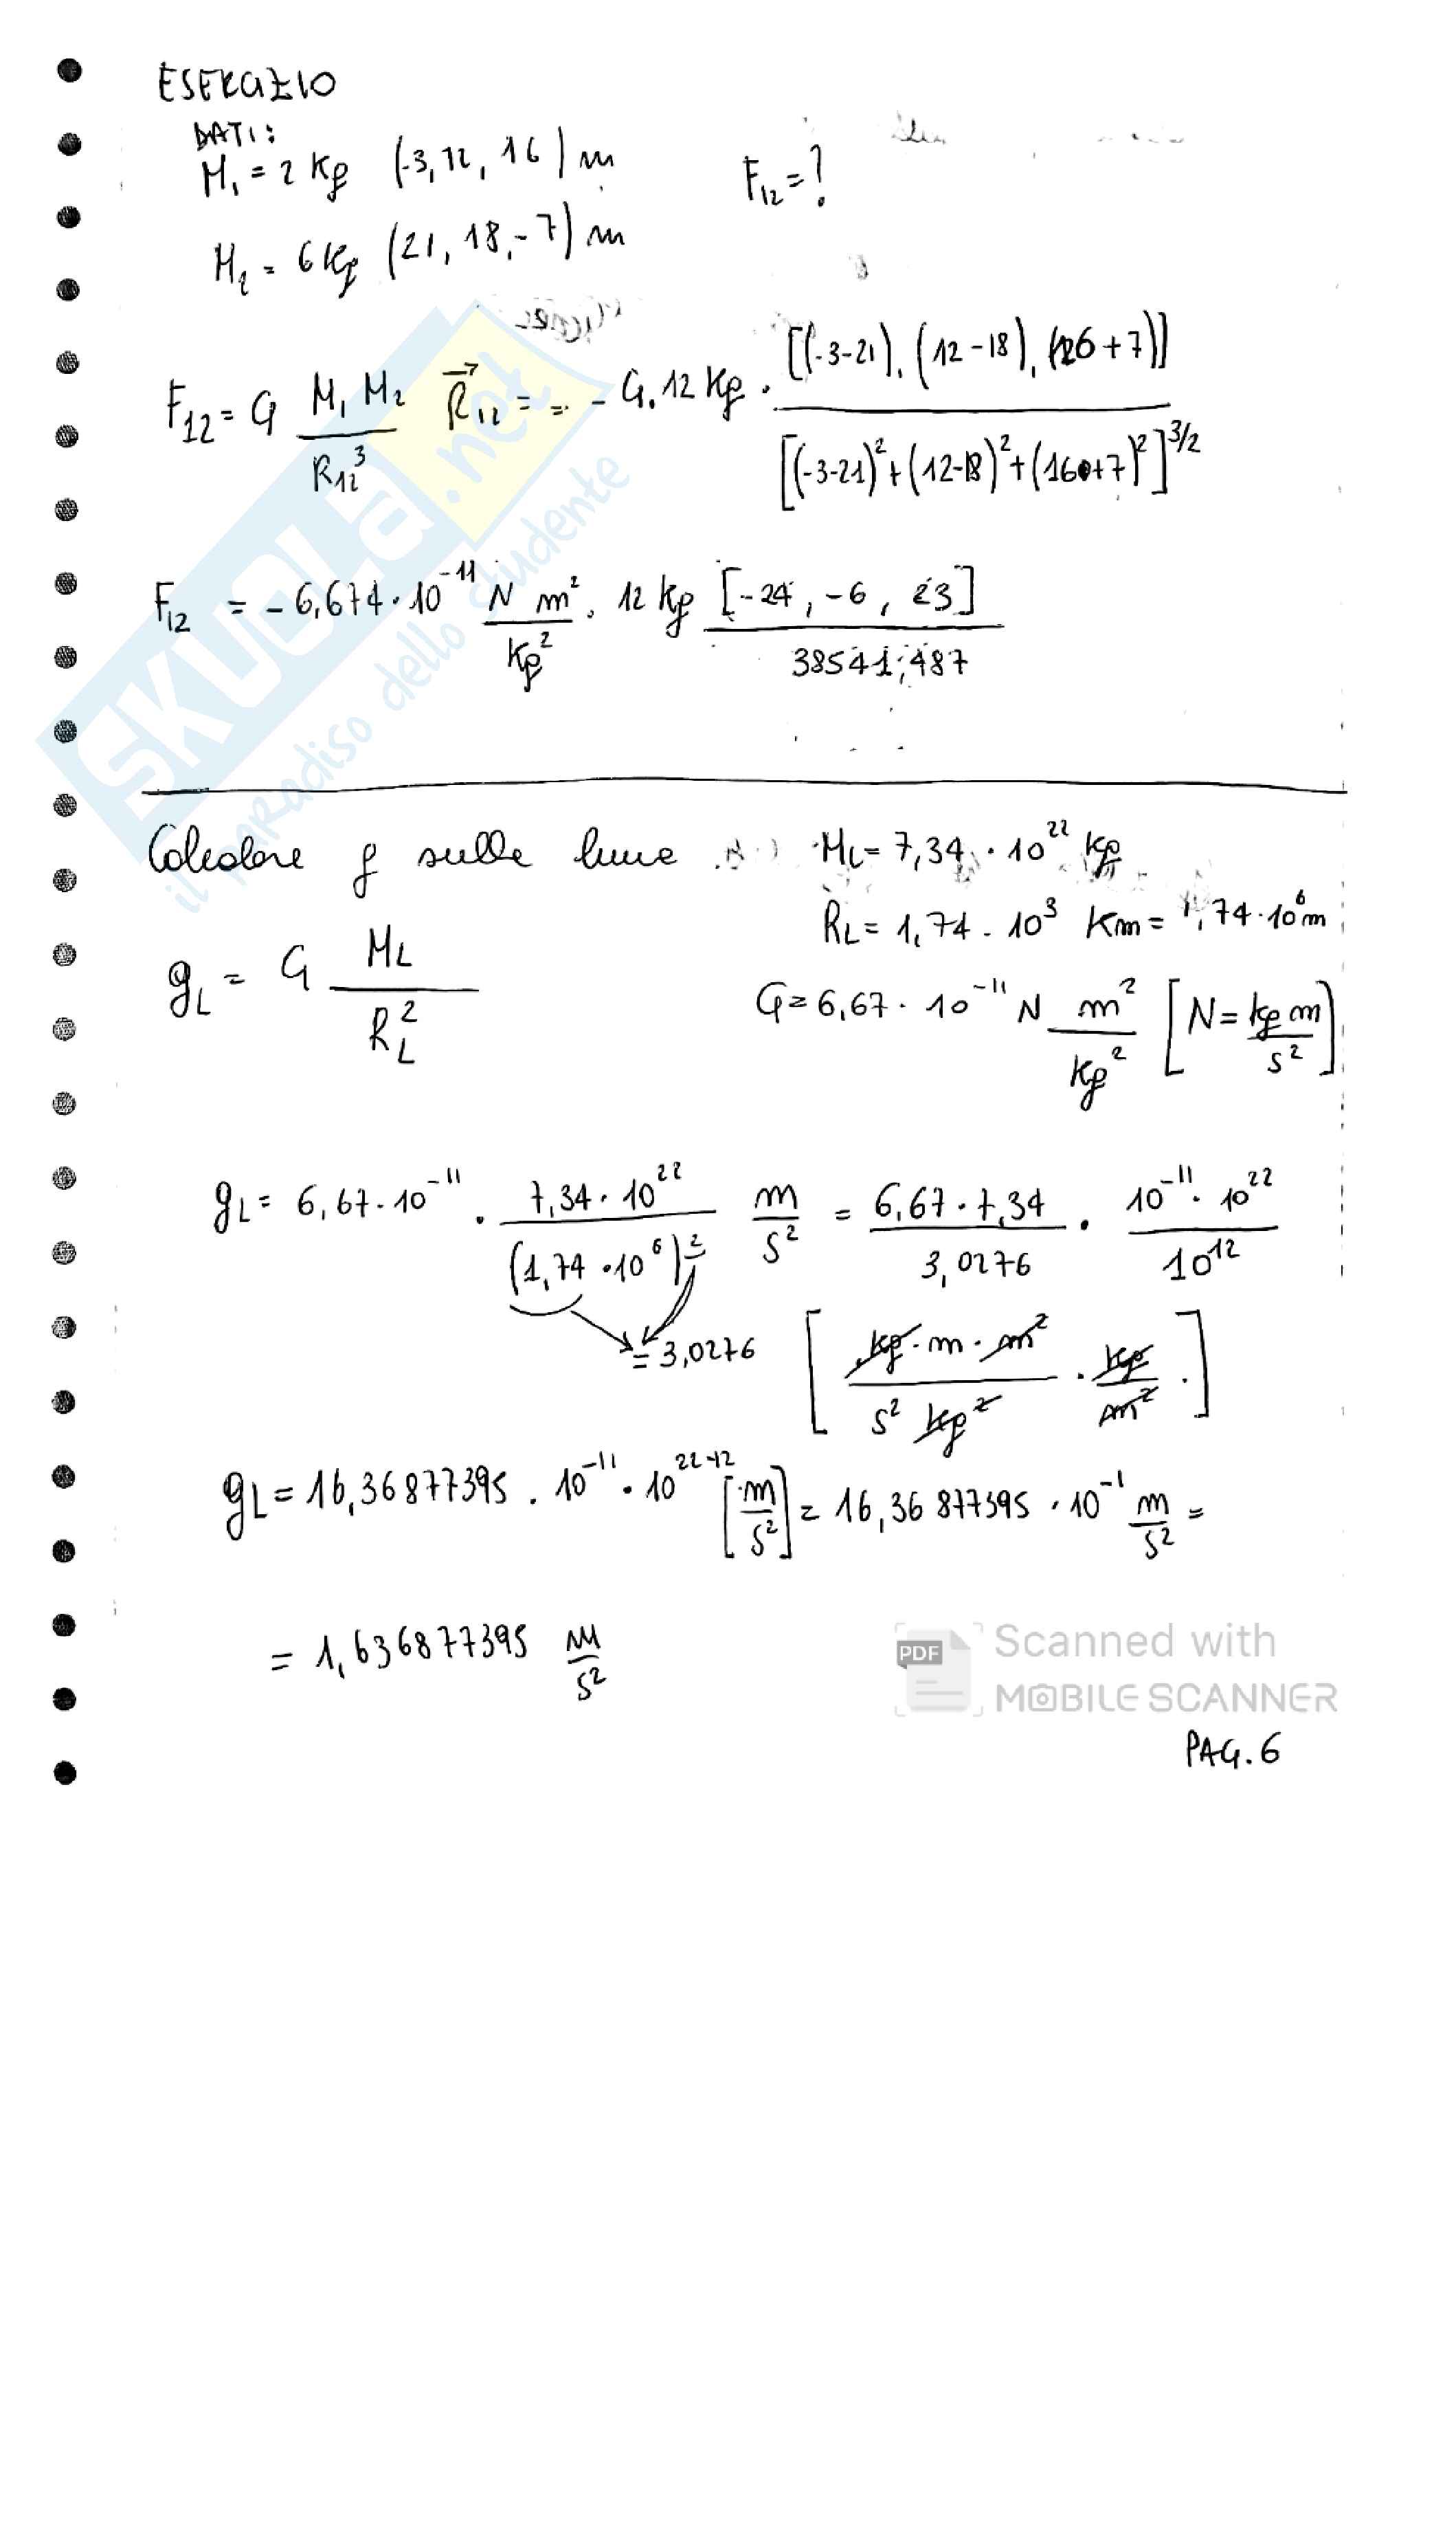 ESERCIZIO
DATI:
M₁ = 2 Kg (-3, 12, 16) m
F₁₂ = ?
M₂ = 6 Kg (21, 18, -7) m
F₁₂ = G M₁ M₂ / R₁₂³ R⃗₁₂ = = - G. 12 Kg · [(-3-21), (12-18), (16+7)] / [(-3-21)² + (12-18)² + (16+7)²]^3/2
F₁₂ = - 6,674 · 10⁻¹¹ N m² / Kg² · 12 Kg [-24, -6, 23] / 38541,487
Calcolare g sulla luna
M_L = 7,34 · 10²² Kg
R_L = 1,74 · 10³ Km = 1,74 · 10⁶ m
g_L = G M_L / R_L²
G = 6,67 · 10⁻¹¹ N m² / Kg² [N = kg m / s²]
g_L = 6,67 · 10⁻¹¹ · 7,34 · 10²² / (1,74 · 10⁶)² m / s² = 6,67 · 7,34 / 3,0276 · 10⁻¹¹ · 10²² / 10¹²
= 3,0276
[kg · m · m² / s² kg² · kg / m² ·]
g_L = 16,36877395 · 10⁻¹¹ · 10²²⁻¹² [m / s²] = 16,36877395 · 10⁻¹ m / s² =
= 1,636877395 m / s²
SKUOLA.net
il paradiso dello studente
PDF
Scanned with
MOBILE SCANNER
PAG. 6